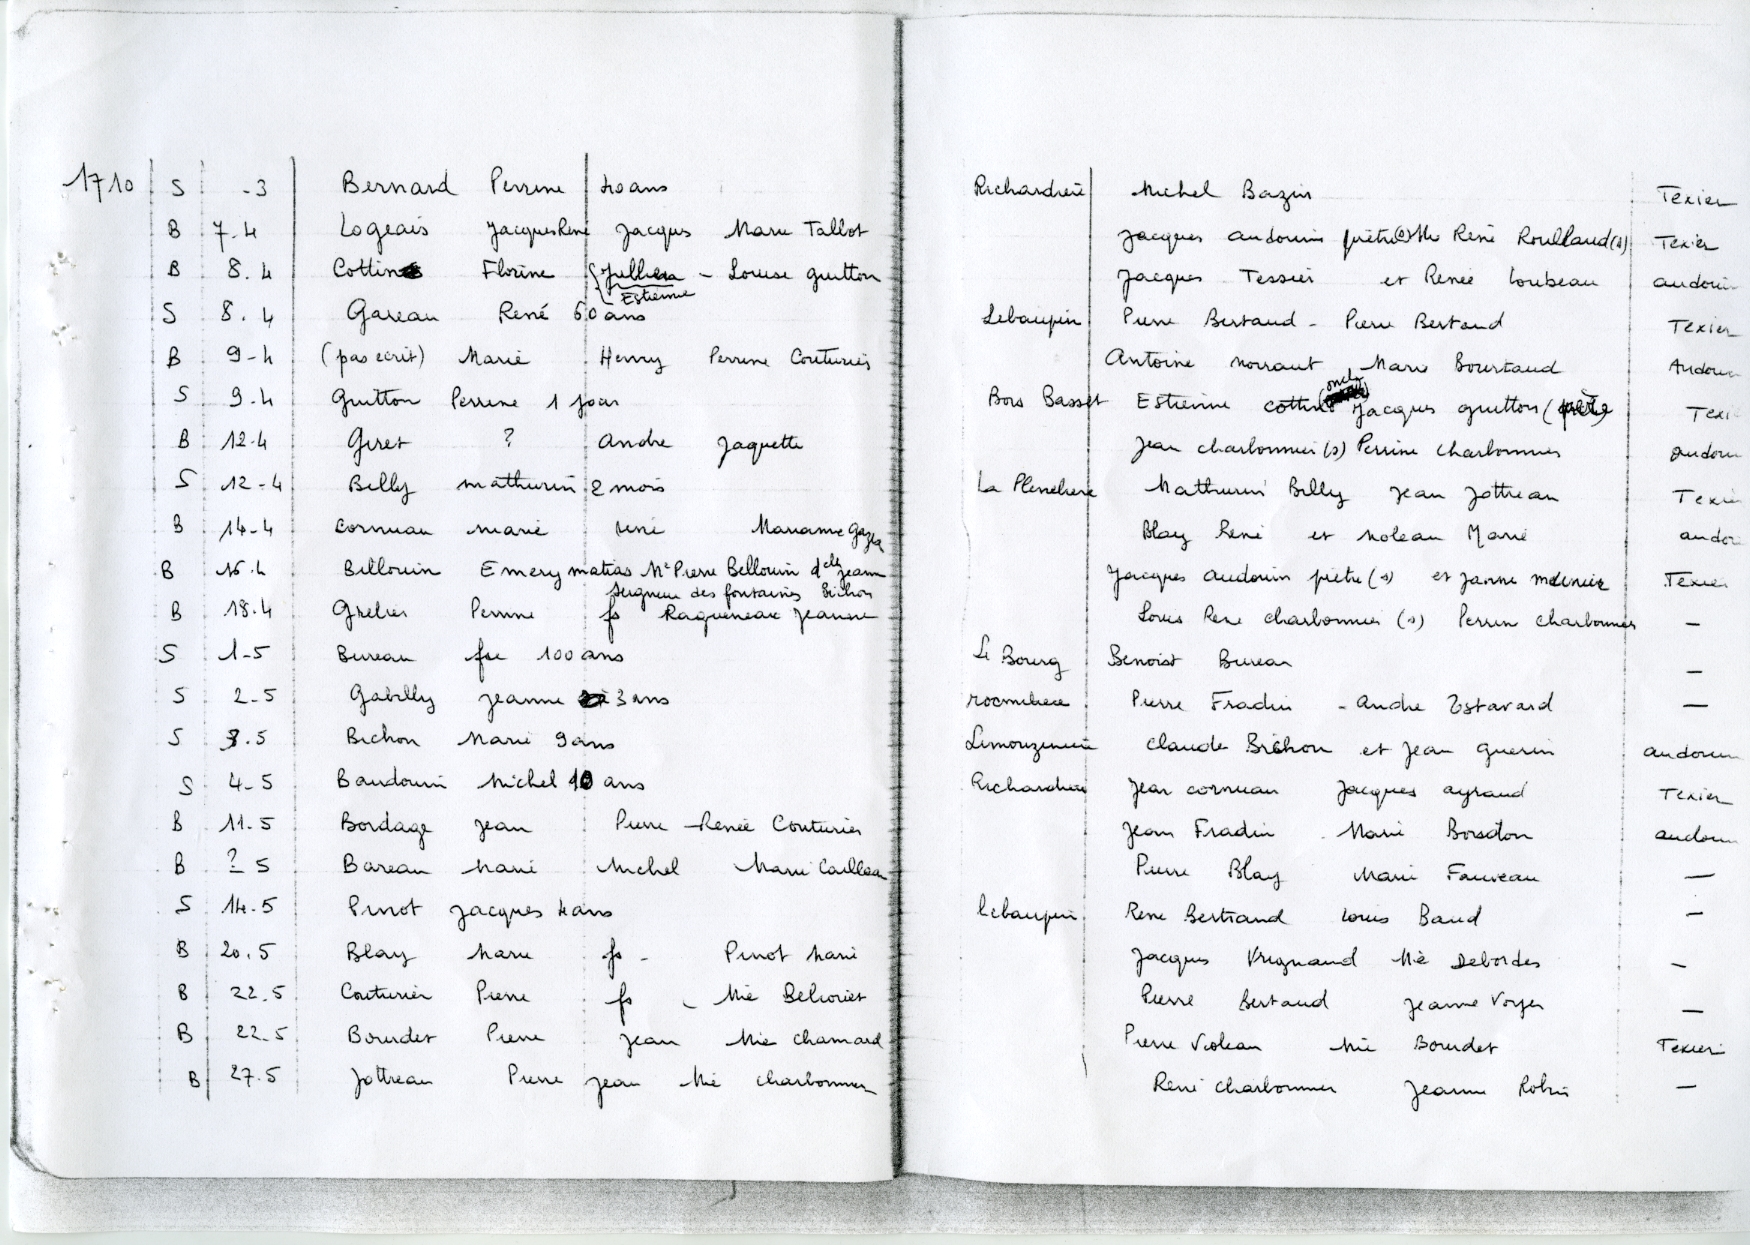 1710 S -3 Bernard Perrine 40 ans Richardiere Michel Bazin Texier
B 7.4 Logeais Jacques René Jacques Marie Tallot Jacques audouin prêtre René Roullaud (s) Texier
B 8.4 Cottin Florine Jullien - Louise guitton Jacques Tessier et Renée Loubeau audouin
Estienne
S 8.4 Gareau René 60 ans Lebaupin Pierre Bertaud - Pierre Bertaud Texier
B 9-4 (pas ecrit) Marie Henry Perrine Couturier Antoine norraut, Marie Bourtaud Audouin
oncle
S 9.4 Guitton Perrine 1 jour Bois Basset Estienne cottin Jacques guitton (père) Texi
B 12.4 Giret ? André Jaquette Jean charbonnier (s) Perrine Charbonnier audoui
S 12-4 Billy mathurin 2 mois La Plenelière Mathurin Billy Jean Jottreau Texie
B 14-4 Cornuau marie rené Marianne Blay René et noleau Marie audoi
B 16.4 Billouin Emery matias Me Pierre Bellouin delle Jeanne Jacques audouin prêtre (s) et Janne Texier
Seigneur des fontaines Bichon
B 18.4 Grelier Perrine fs Raqueneau Jeanne Louis René charbonnier (s) Perrin Charbonnier —
S 1-5 Bureau fse 100 ans Le Bourg Benoist Bureau —
S 2-5 Gabilly Jeanne 3 ans Pierre Fradin - andre Estavard —
S 3.5 Bichon Marie 9 ans Limouziniere Claude Bichon et Jean guerin audouin
S 4-5 Baudouin Michel 10 ans Richardiere Jean cornuau Jacques ayraud Texier
B 11.5 Bordage Jean Pierre - Renée Couturier Jean Fradin Marie audoui
B ? 5 Bareau Marie Michel Marie Cailleau Pierre Blay Marie Fauveau —
S 14.5 Pinot Jacques 4 ans lebaupin René Bertrand Louis Baud —
B 20.5 Blay Marie fs - Pinot Marie Jacques Vrignaud Mie Debordes —
B 22.5 Couturier Pierre fs - Mie Belioriet Pierre Bertaud Jeanne Voyer —
B 22.5 Bourdet Pierre Jean Mie chamard Pierre Violeau Mie Bourdet Texier
B 27.5 Jottreau Pierre Jean Mie charbonnier René charbonnier Jeanne Robin —